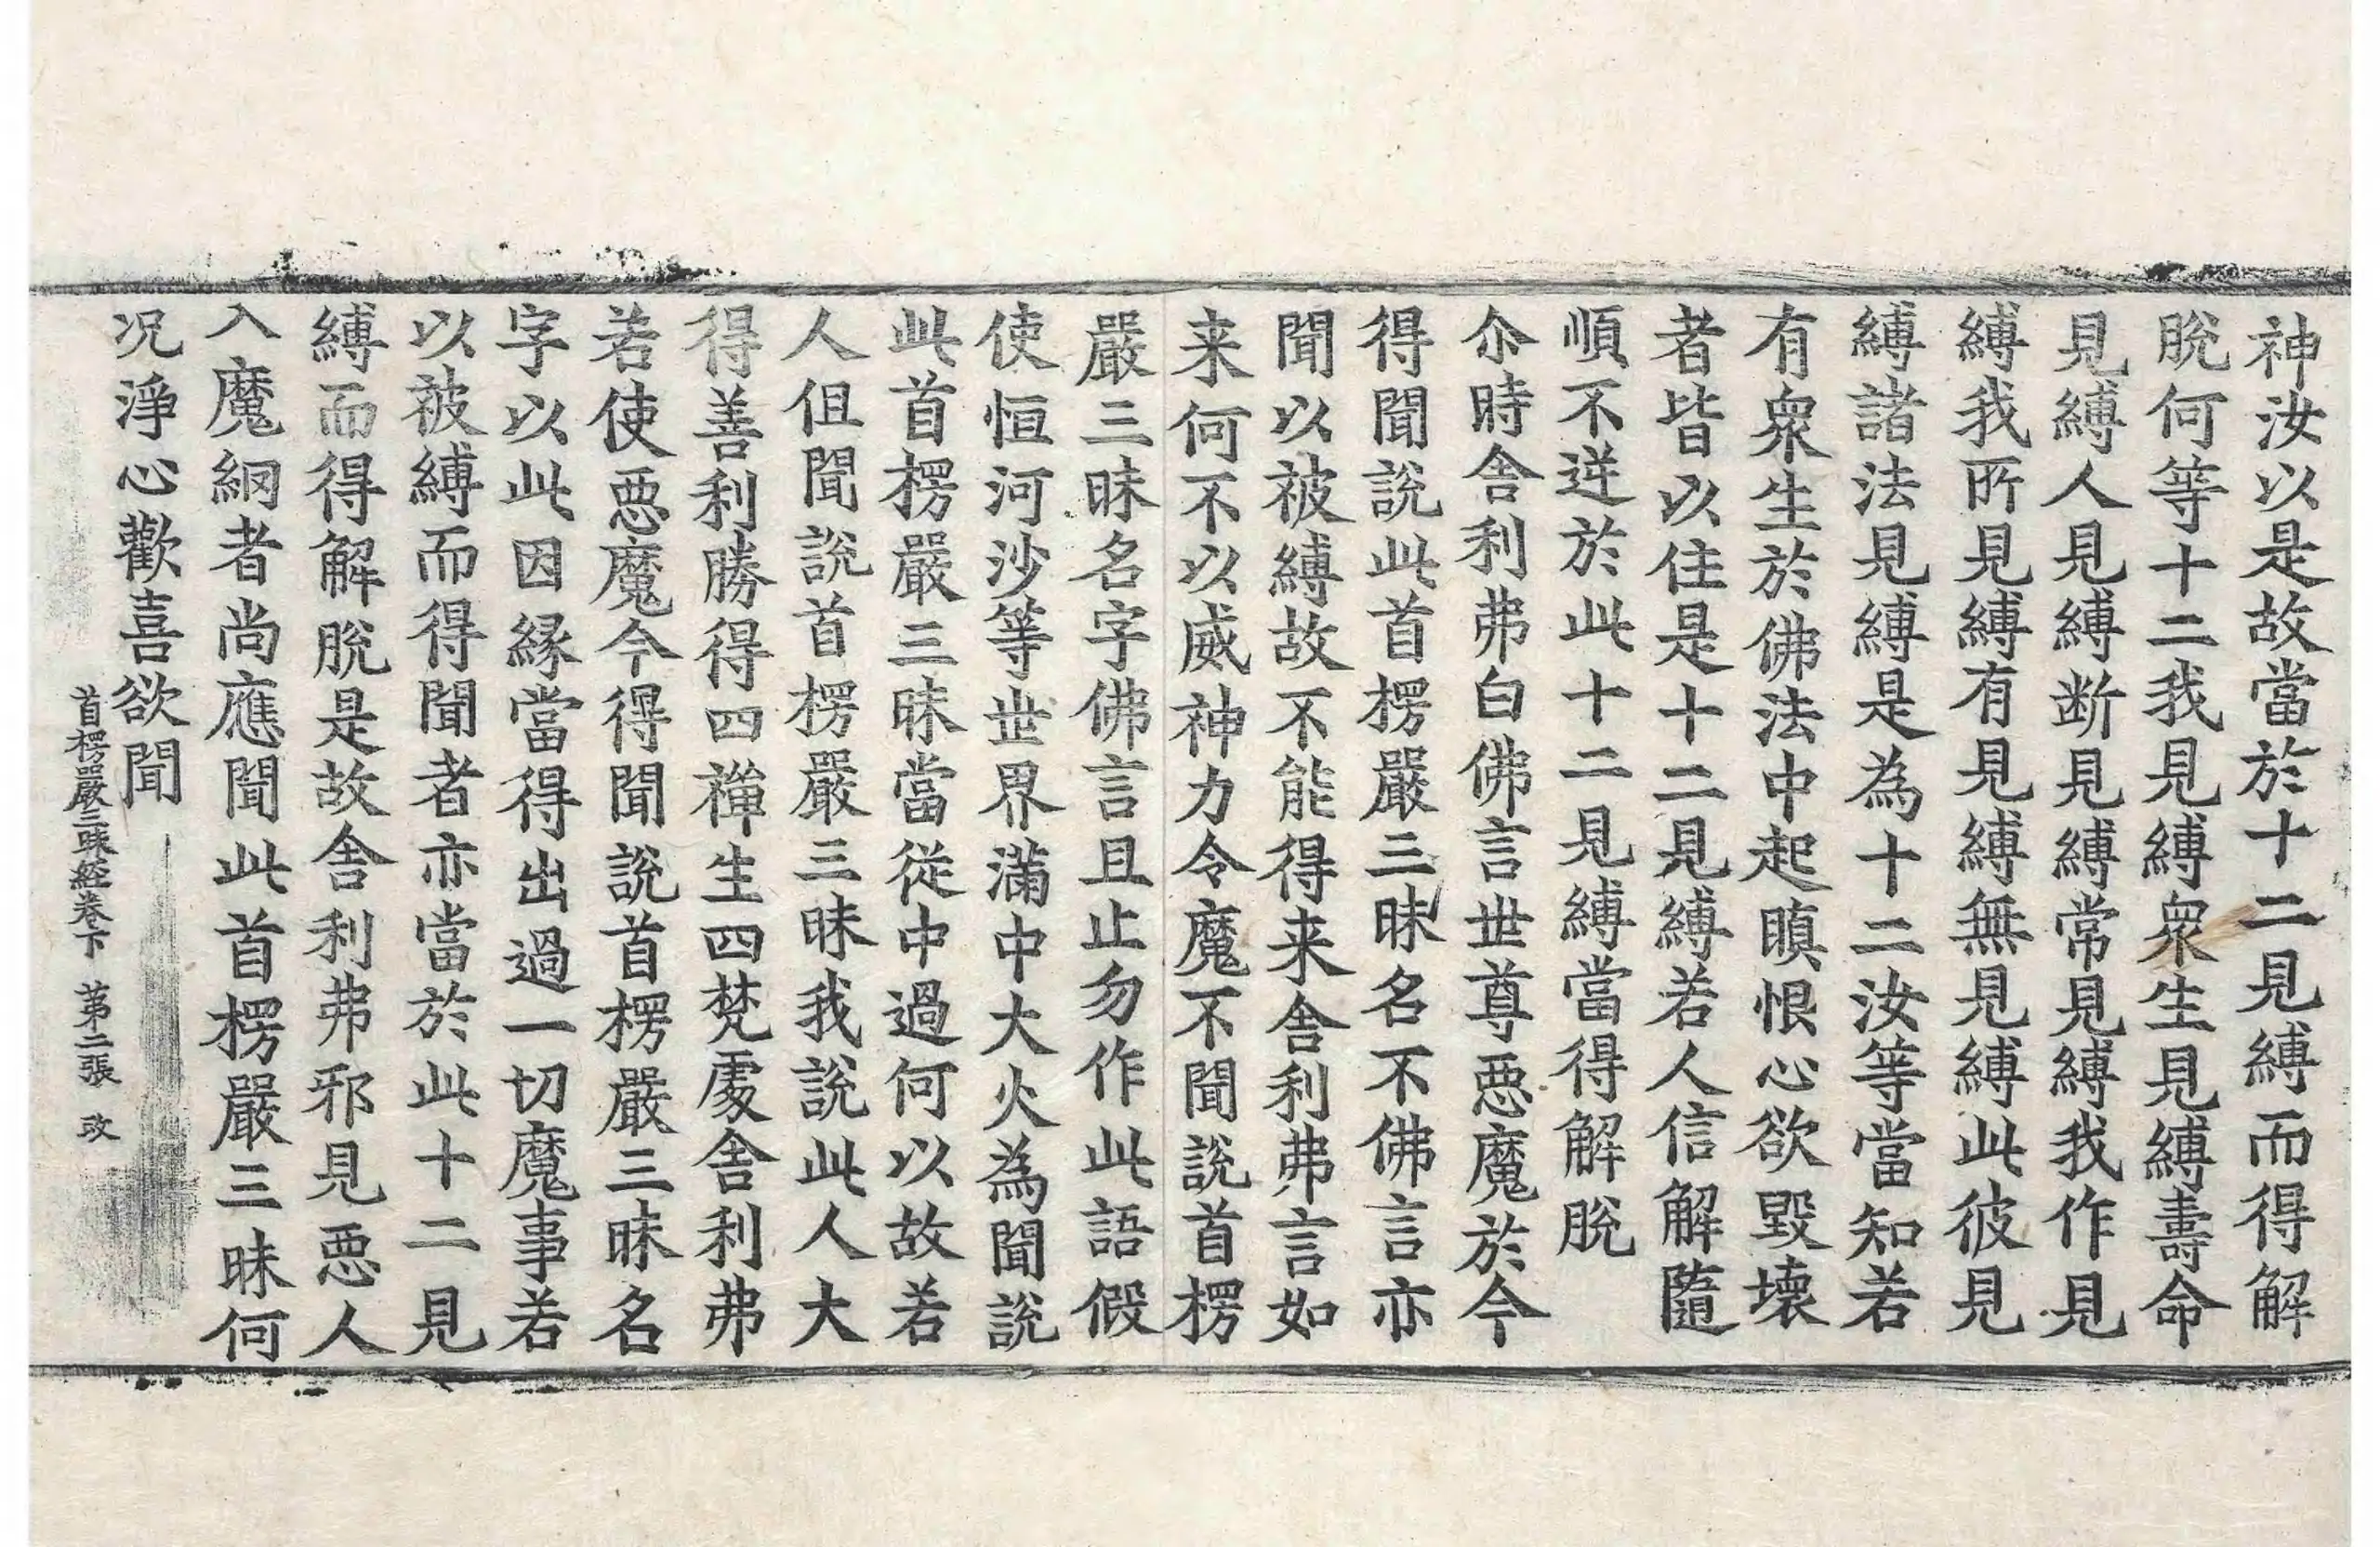 神汝以是故當於十二見縛而得解
脫何等十二我見縛衆生見縛壽命
見縛人見縛断見縛常見縛我作見
縛我所見縛有見縛無見縛此彼見
縛諸法見縛是為十二汝等當知若
有衆生於佛法中起瞋恨心欲毀壞
者皆以住是十二見縛若人信解隨
順不逆於此十二見縛當得解脫
尒時舍利弗白佛言世尊惡魔於今
得聞說此首楞嚴三昧名不佛言亦
聞以被縛故不能得来舍利弗言如
来何不以威神力令魔不聞說首楞
嚴三昧名字佛言且止勿作此語假
使恒河沙等世界滿中大火為聞說
此首楞嚴三昧當從中過何以故若
人但聞說首楞嚴三昧我說此人大
得善利勝得四禪生四梵處舍利弗
若使惡魔今得聞說首楞嚴三昧名
字以此因縁當得出過一切魔事若
以被縛而得聞者亦當於此十二見
縛而得解脫是故舍利弗邪見惡人
入魔網者尚應聞此首楞嚴三昧何
况淨心歡喜欲聞
首楞嚴三昧經卷下 第二張 改